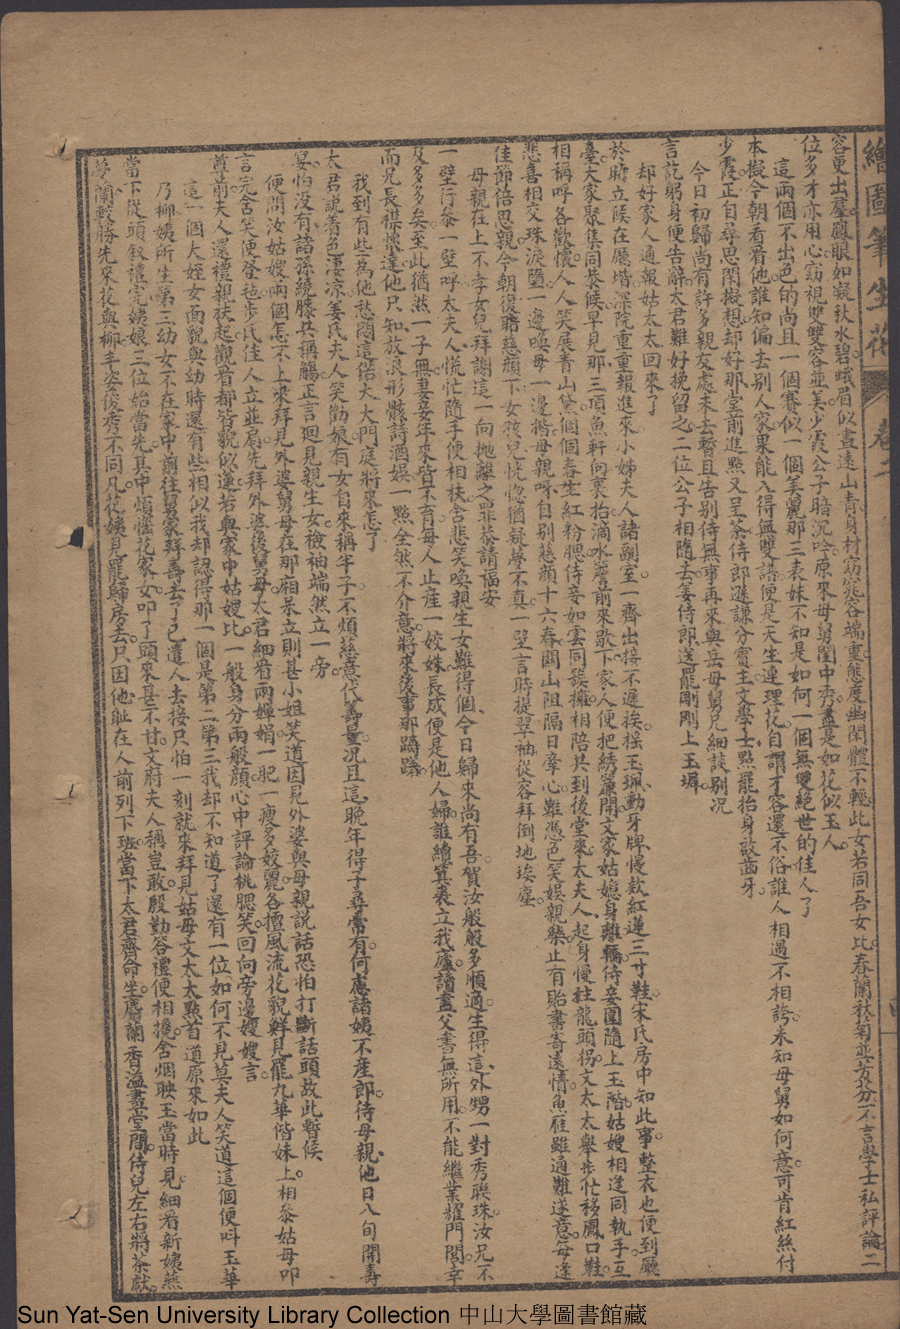 繪圖筆生花 卷二 四
容更出屋。鳳眼如凝秋水碧。蛾眉似畫遠山青。身材窈窕容端重。態度幽閑體不輕。此女若同吾女比。春蘭秋菊並芳芬。不言學士私評論。二
位多才亦用心。窃視雙雙容並美。少霞公子暗沉吟。原來母舅閨中秀。盡是如花似玉人。
這兩個不出色的尚且一個賽似一個美麗那三表妹不知是如何一個無雙絕世的佳人了
本擬今朝看看他。誰知偏去別人家。果能入得無雙譜。便是天生連理花。自謂才容還不俗。誰人相過不相誇。未知母舅如何意。可肯紅絲付
少霞。正自尋思閑擬想。却好那。堂前進點又呈茶。侍郎遜讓分賓主。文學士。點罷抬身啟齒牙。
今日初歸尚有許多親友處未去暫且告別侍無事再來與岳母舅兄細談別况
言訖躬身便告辭。太君難好挽留之。二位公子相隨去。姜侍郎。送罷剛剛上玉墀。
却好家人通報姑太太回來了
於時立候在廳堦。深院重重報進來。小姊夫人諸副室。一齊出接不遲挨。搖玉珮。動牙牌。慢欵紅蓮三寸鞋。宋氏房中知此事。整衣也便到廳
臺。大家聚集同恭候。早見那。三項魚軒向裏抬。滴水簷前來歇下。家人便把綉簾開。文家姑媳身離轎。侍妾圍隨上玉階。姑嫂相逢同執手。互
相稱呼各歡懷。人人笑展青山黛。個個春生紅粉腮。侍妾如雲同簇擁。相陪共到後堂來。太夫人。起身慢拄龍頭拐。文太太。舉步忙移鳳口鞋。
悲喜相交珠淚墮。一邊喚母一邊揩。母親呀。自別慈顏十六春。關山阻隔日牽心。難憑色笑娛親髮。止有貽書寄遠情。魚雁雖通難遂意。每逢
佳節倍思親。今朝復睹慈顏下。女孩兒。恍惚猶疑夢不真。一壁言時提翠袖。從容拜倒地埃塵。
母親在上不孝女兒拜謝這一向抛離之罪恭請福安
一壁行參一壁呼。太夫人。慌忙隨手便相扶。含悲笑喚親生女。難得個。今日歸來尚有吾。賀汝般般多順適。生得這。外甥一對秀聯珠。汝兄不
及多多矣。至此猶然一子無。妻妾年來皆不育。每人止產一姣姝。長成便是他人婦。誰續箕裘立我廬。讀盡父書無所用。不能繼業耀門閭。幸
而兄長襟懷達。他只知。放浪形骸詩酒娛。一點全然不介意。將來後事那躊躇。
我到有些為他愁悶這偌大大門庭將來怎了
太君說着色凄凉。姜氏夫人笑勸娘。有女自來稱半子。不煩慈意代籌量。况且這。晚年得子尋常有。何慮諸姨不產郎。待母親。他日八旬開壽
宴。怕沒有。諸孫繞膝共稱觴。正言廻見親生女。檢袖端然立一旁。
便問汝姑嫂兩個怎不上來拜見外婆舅母在那廂呆立則甚小姐笑道因見外婆與母親說話恐怕打斷話頭故此暫候
言完含笑便登毡。步氏佳人立並肩。先拜外婆後舅母。太君細看兩嬋娟。一肥一瘦多姣麗。各擅風流花貌鮮。見罷九華偕妹上。相參姑母叩
尊前。夫人還禮親扶起。觀看都皆貌似蓮。若與家中姑嫂比。一般身分兩般顏。心中評論桃腮笑。回向旁邊嫂嫂言。
這一個大姪女面貌與幼時還有些相似我却認得那一個是第二第三我却不知道了還有一位如何不見莫夫人笑道這個便叫玉華
乃柳姨所生第三幼女不在家中前往舅家拜壽去了已遣人去接只怕一刻就來拜見姑母文太太點首道原來如此
當下從頭叙禮完。姨娘三位始當先。其中煩惱花家女。叩了頭來甚不甘。文府夫人稱豈敢。殷勤答禮便相攙。含烟映玉當時見。細看新姨燕
夢蘭。較勝先來花與柳。丰姿俊秀不同凡。花姨見罷歸房去。只因他。耻在人前列下班。當下太君齊命坐。麝蘭香溢畫堂間。侍兒左右將茶獻。
Sun Yat-Sen University Library Collection 中山大學圖書館藏